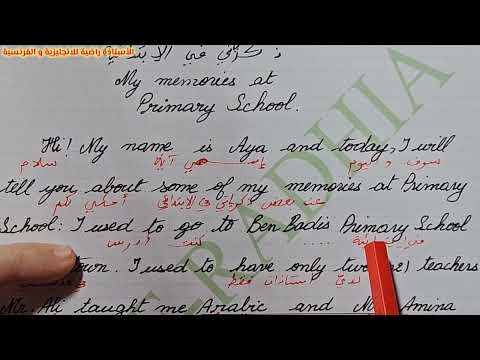 الأستاذة راضية للانجليزية و الفرنسية
ذكرياتي في الابتدائية
My memories at
Primary School.
Hi! My name is Aya and today, I will
سلام إسمي آية سوف اليوم
tell you about some of my memories at Primary
أحكي لكم عن بعض ذكرياتي في الابتدائي
School: I used to go to Ben Badis Primary School
كنت أدرس
town. I used to have only two teachers
لدي أستاذان فقط
Mr. Ali taught me Arabic and Amina
RADHIA